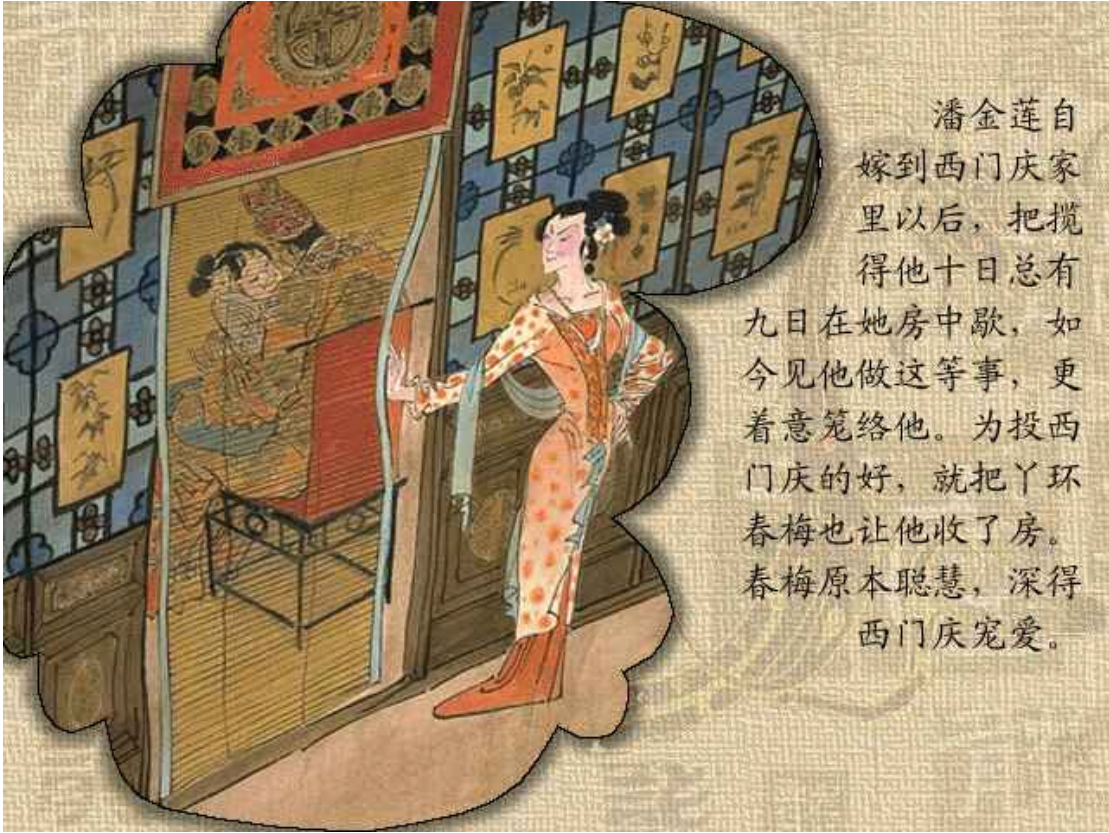 潘金莲自
嫁到西门庆家
里以后，把揽
得他十日总有
九日在她房中歇，如
今见他做这等事，更
着意笼络他。为投西
门庆的好，就把丫环
春梅也让他收了房。
春梅原本聪慧，深得
西门庆宠爱。